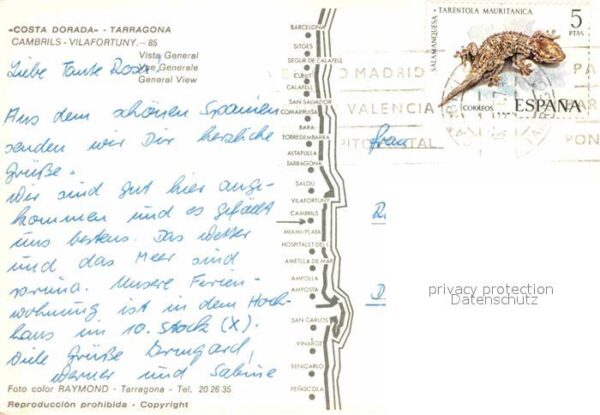 «COSTA DORADA» - TARRAGONA
CAMBRILS - VILAFORTUNY. – 85
Vista General
Vue Generale
General View
Liebe Tante Rosa!
Aus dem schönen Spanien
senden wir Dir herzliche
Grüße.
Wir sind gut hier ange-
kommen und es gefällt
uns bestens. Das Wetter
und das Meer sind
prima. Unsere Ferien-
wohnung ist in dem Hoch-
haus im 10. Stock (X).
Viele Grüße Irmgard,
Werner und Sabine
Foto color RAYMOND - Tarragona - Tel. 20 26 35
Reproducción prohibida - Copyright
BARCELONA
SITGES
SEGUR DE CALAFELL
CUNIT
CALAFELL
SAN SALVADOR
COMARRUGA
BARA
TORREDEMBARRA
ALTAFULLA
TARRAGONA
SALOU
VILAFORTUNY
CAMBRILS
MIAMI-PLAYA
HOSPITALET DE L
AMETLLA DE MAR
AMPOLLA
AMPOSTA
SAN CARLOS
VINAROZ
BENICARLO
PEÑISCOLA
SALAMANQUESA · TARENTOLA MAURITANICA
5
PTAS
CORREOS
ESPAÑA
MADRID
VALENCIA
PON
Frau
privacy protection
Datenschutz